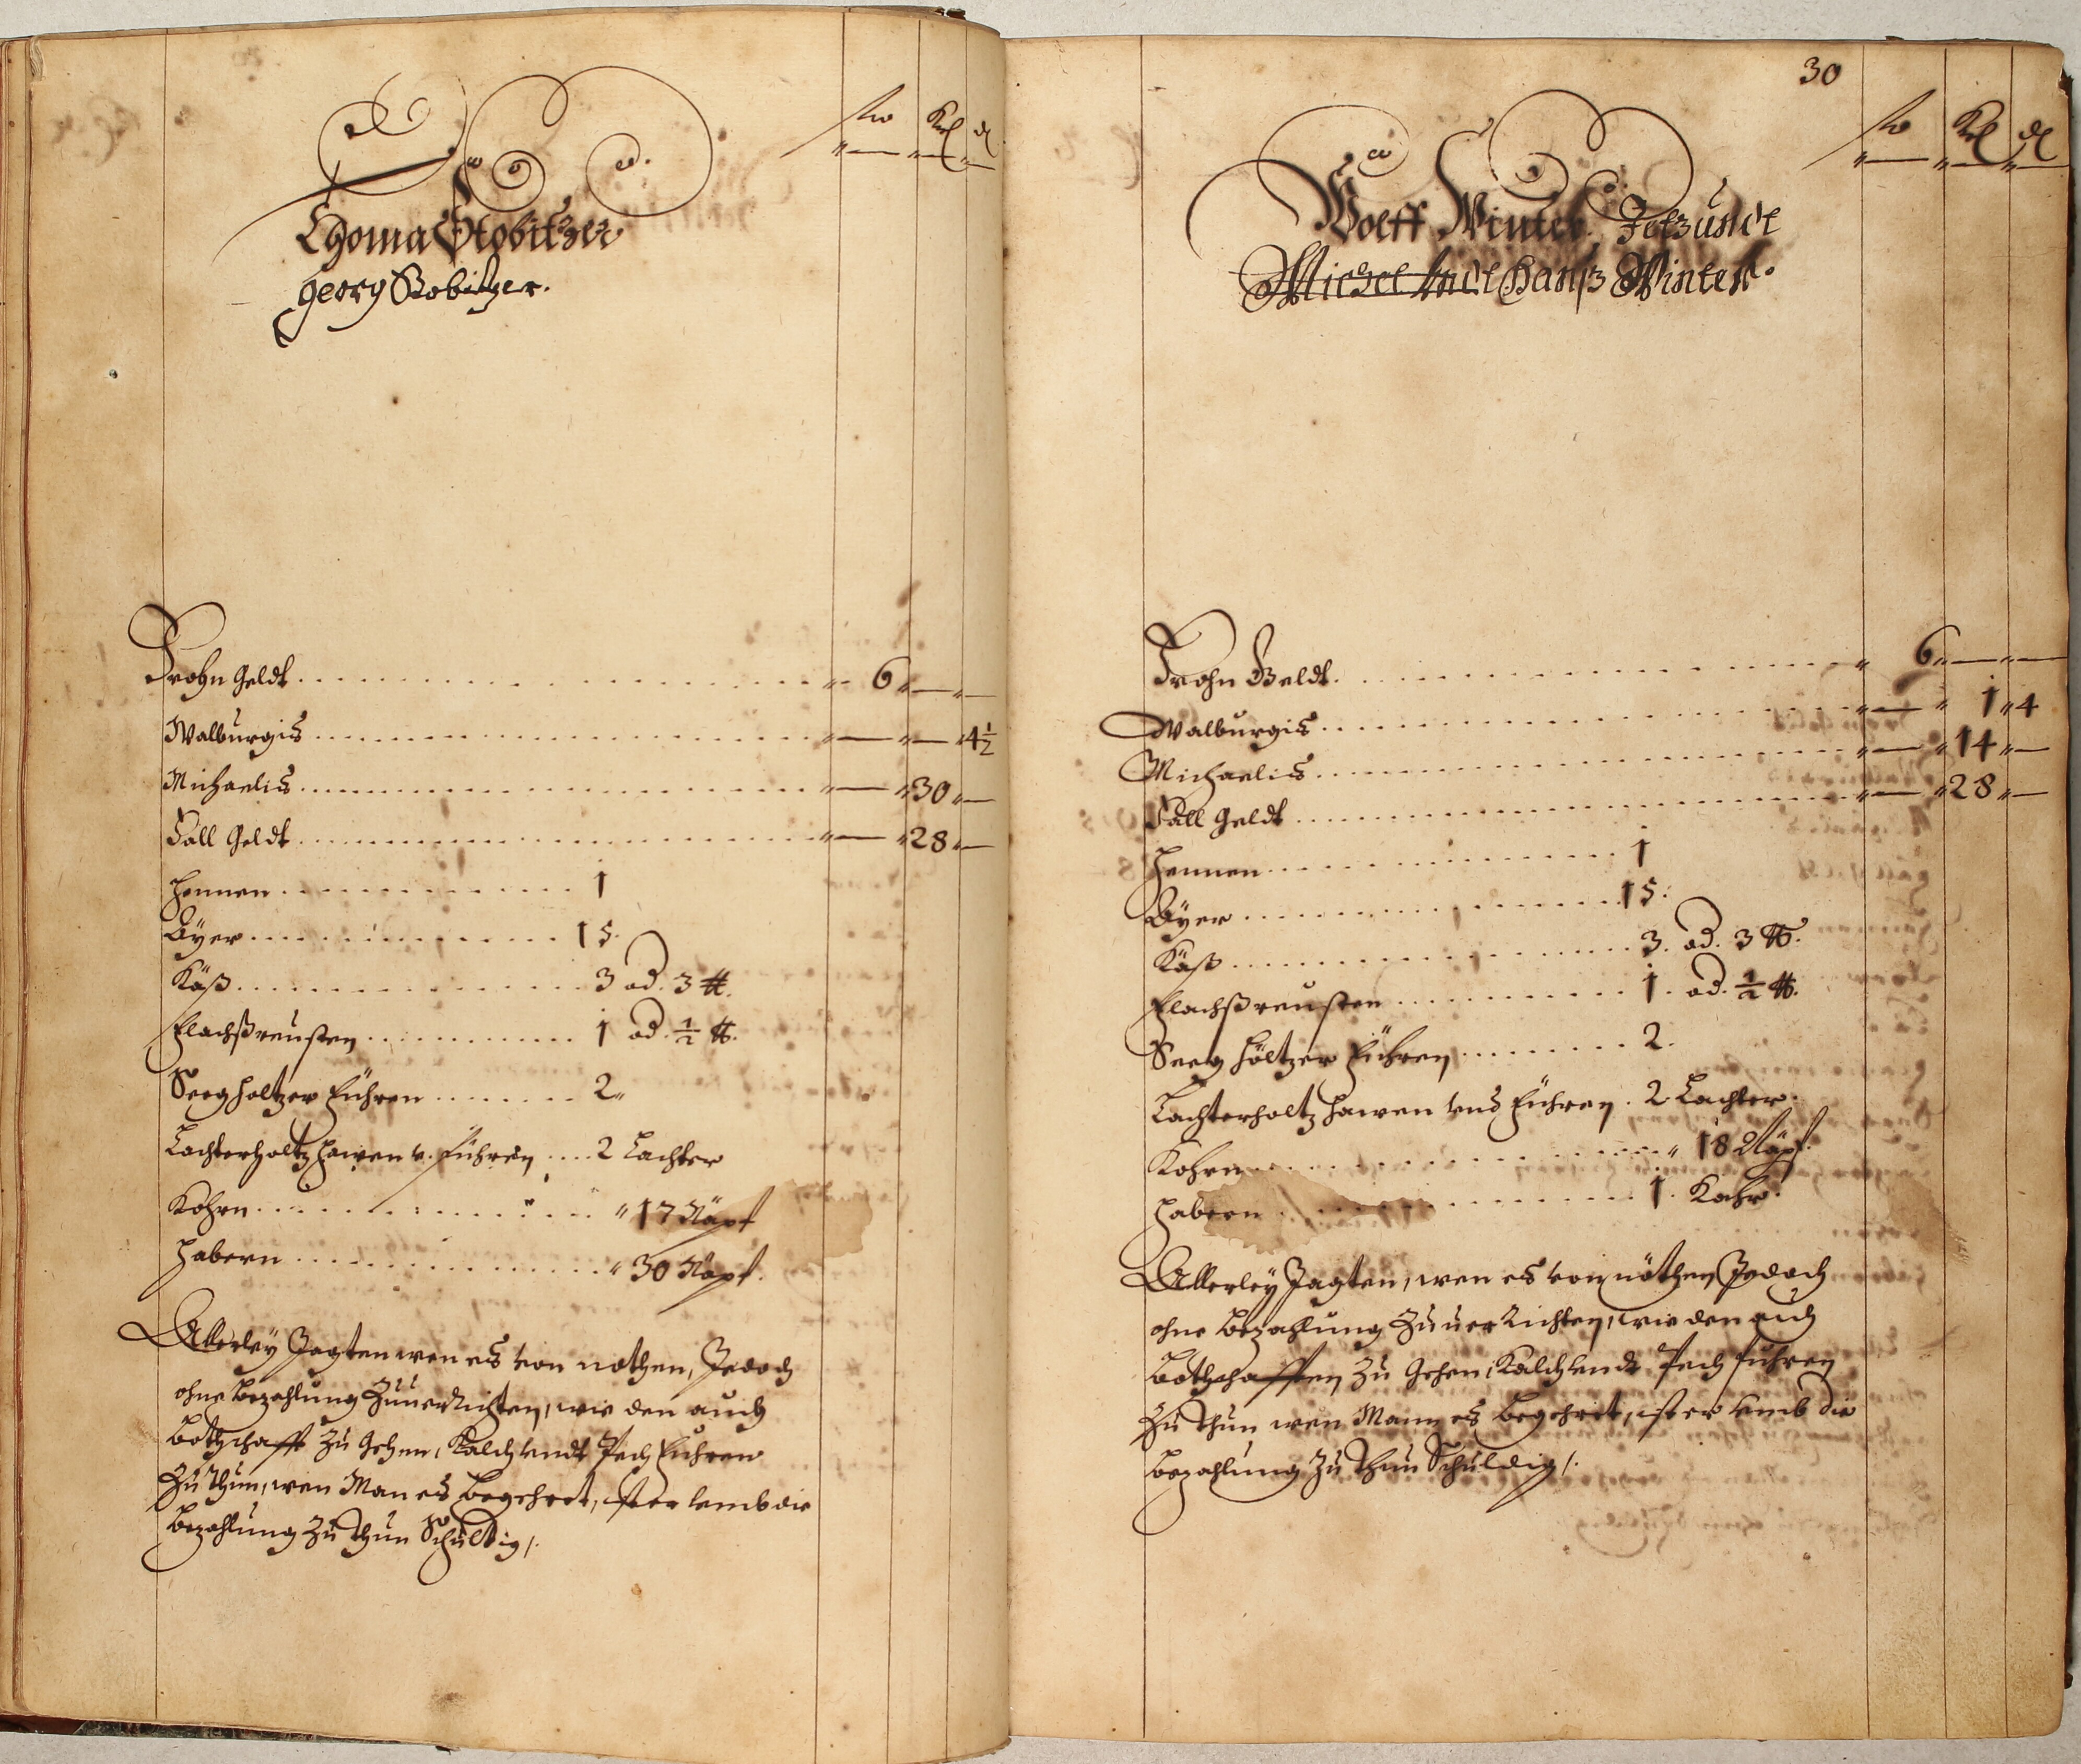 fl Krl dl
Thoma Stobitzer
Georg Stobitzer.
Frohn Geldt 6
Walburgis 4 1/2
Michaelis 30
Fall Geldt 28
Hennen 1
Ayer 15.
Käß 3 od. 3 ℔.
Flachßreusten 1 od. 1/2 ℔.
Seegholtzer Führen 2
Lachterholtz hawen v. Führen 2 Lachter
Kohrn 17 Näpf
Habern 30 Näpf.
Allerley Jagten wen es von nothen, Jedoch
ohne Bezahlung Zuuerrichten, wie den auch
Bothschafft Zu Gehen, Kalch vndt Pech Fuhren
Zu thun, wen Man es Begehret, ist er vmb die
Bezahlung Zu thun Schuldig /.
30
fl Krl dl
Wolff Winter. Jetzundt
Michel vndt Hanß Winter.
Frohn Geldt. 6
Walburgis 1 4
Michaelis 14
Fall Geldt 28
Hennen 1
Ayer 15.
Käß 3. od. 3 ℔.
Flachßreusten 1. od. 1/2 ℔.
Seeg höltzer Führen 2.
Lachterholtz hawen vnd Führen. 2 Lachter.
Kohrn 18 Näpf.
Habern 1. Kahr.
Allerley Jagten, wen es von nöthen Jedoch
ohne Bezahlung Zuuerrichten, wie den auch
Bothschafften Zu Gehen, Kalch vndt Pech fuhren
Zu thun wen Mann es Begehret, ist er vmb die
Bezahlung Zu thun Schuldig /.